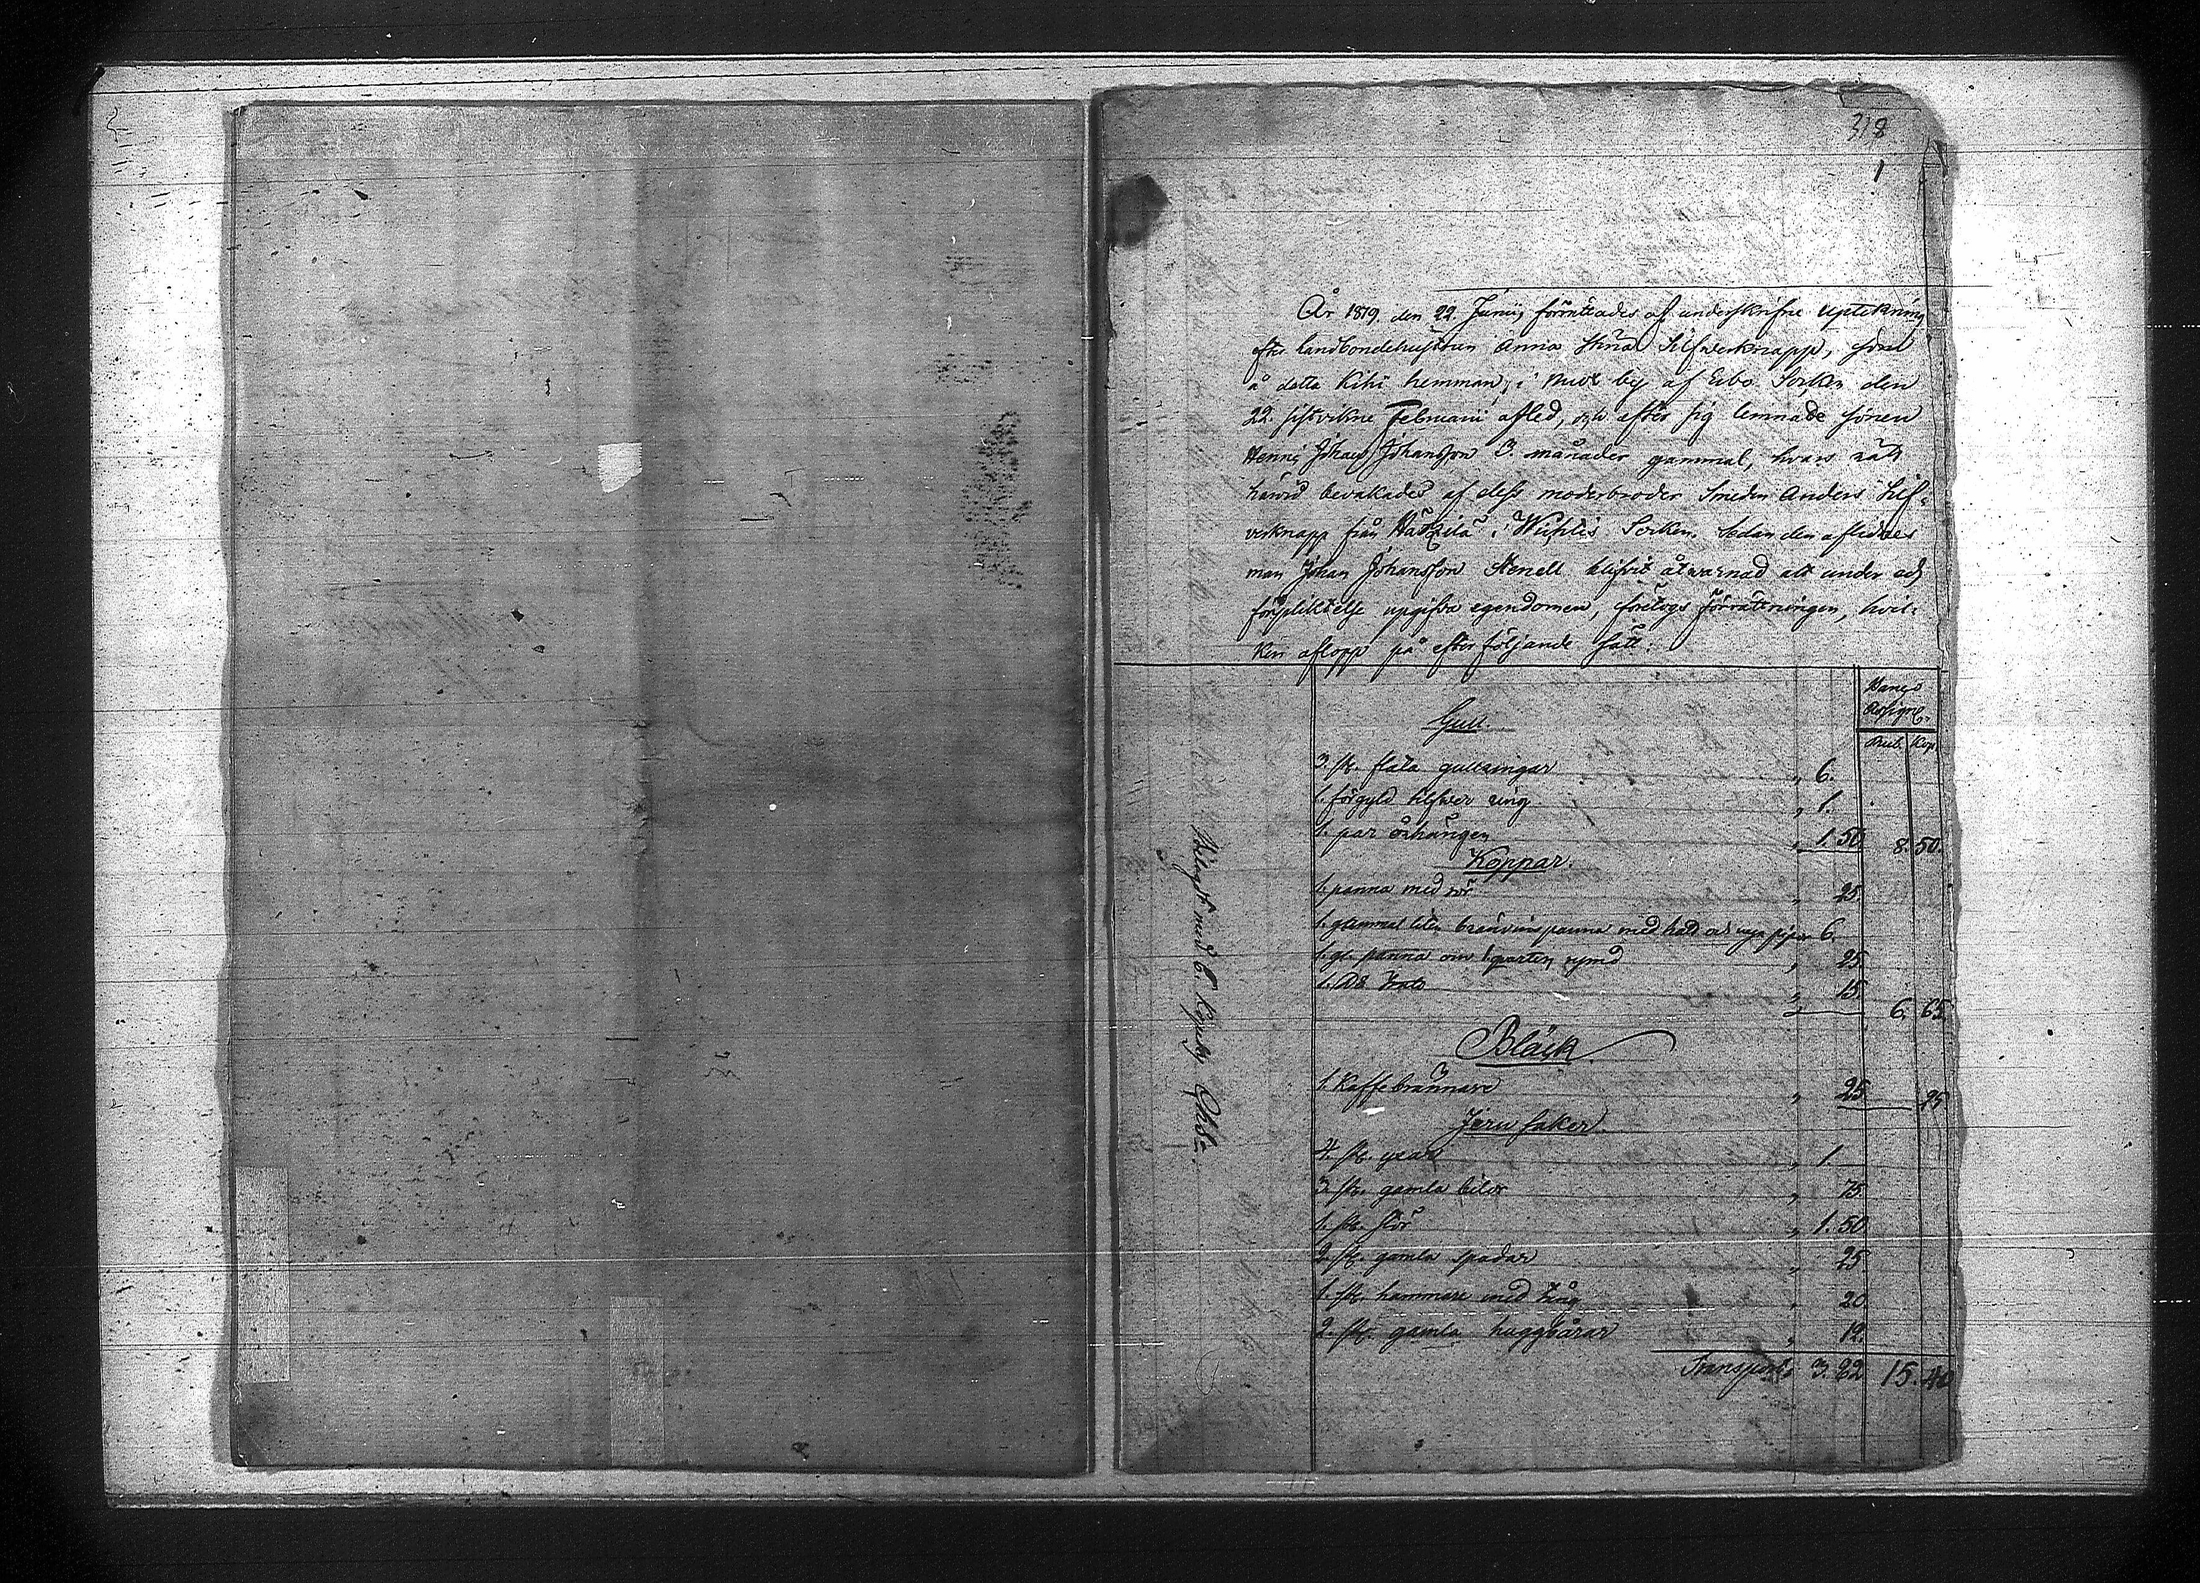 318
1
År 1819. den 22. Junii, förrättades af underskrifne Uptekning
efter Landbondehustrun Anna Stina Silfwerknapp, som
å detta Kihi hemman, i by af Esbo Sorken den
22. sistvikne Februarii afled, och efter sig lemnade sonen
Henric Johan Johansson 3. månader gammal, hvars rätt
härvid bevakades af dess moderbroder Smeden Anders Silf-
verknapp från i Wichtis Sorken. Sedan den aflidnes
man Johan Johansson Stenell blifvit åtwarnad att under ed
förpliktelse upgifva egendomen, företogs förrättningen, hvil-
ken aflopp på efterföljande sätt:
Banco
Assigne.
Rub. Kop.
Gull.
3. st. släta gullringar " 6.
1. förgyld silfwer ring " 1.
1. par örhängen " 1. 50 8. 50.
Koppar.
1. panna med rör " 25
1. gammal liten bränvins panna med hatt och pipor 6.
1. gl. panna om 1 qvarters rymd " 25
1. D:o " 15
6. 65
Bläck
1. Kaffebrännare " 25 25
Jern saker.
4. st. yxar " 1.
3. st. gamla bilor " 75.
1. st. " 1. 50
2. st. gamla spadar " 25
1. st. hammare med tång " 20
2. st. gamla huggbårar " 12.
Transport: 3. 82 15. 40
Belagdt med 6. Kopek